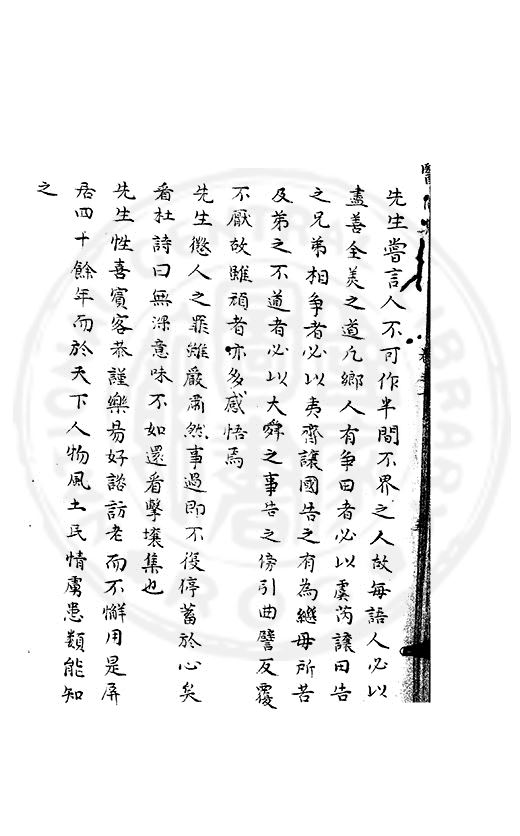 先生嘗言人不可作半間不界之人故每語人必以
盡善全美之道凡鄉人有争田者必以虞芮讓田告
之兄弟相争者必以夷齊讓國告之有為繼母所苦
及弟之不道者必以大舜之事告之傍引曲譬反覆
不厭故雖頑者亦多感悟焉
先生懲人之罪雖嚴肅然事過即不復停蓄於心矣
看杜詩曰無深意味不如還看擊壤集也
先生性喜賓客恭謹樂易好諮訪老而不懈用是屏
居四十餘年而於天下人物風土民情虜患類能知
之